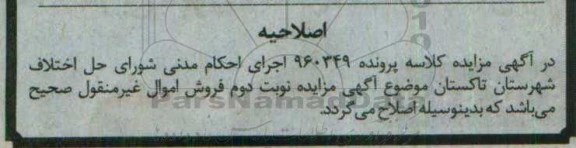 اصلاحیه
در آگهی مزایده کلاسه پرونده ۹۶۰۳۴۹ اجرای احکام مدنی شورای حل اختلاف
شهرستان تاکستان موضوع آگهی مزایده نوبت دوم فروش اموال غیرمنقول صحیح
می‌باشد که بدینوسیله اصلاح می گردد.
ParsNamadData